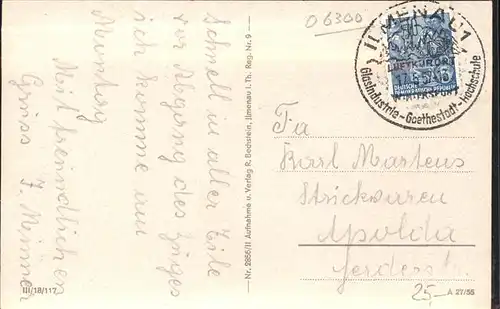 Schnell in aller Eile
vor Abgang des Zuges
ich komme am
Montag
Mit freundlichen
Gruss
III/18/117
Nr. 2855/II Aufnahme u. Verlag R. Bechstein, Ilmenau i. Th. Reg. Nr. 9
06300
ILMENAU 1
LUFTKURORT
DEUTSCHE
DEMOKRATISCHE REPUBLIK
Glasindustrie - Goethestadt - Hochschule
Fa
Karl Martens
Strickwaren
Apolda
25,-
A 27/55